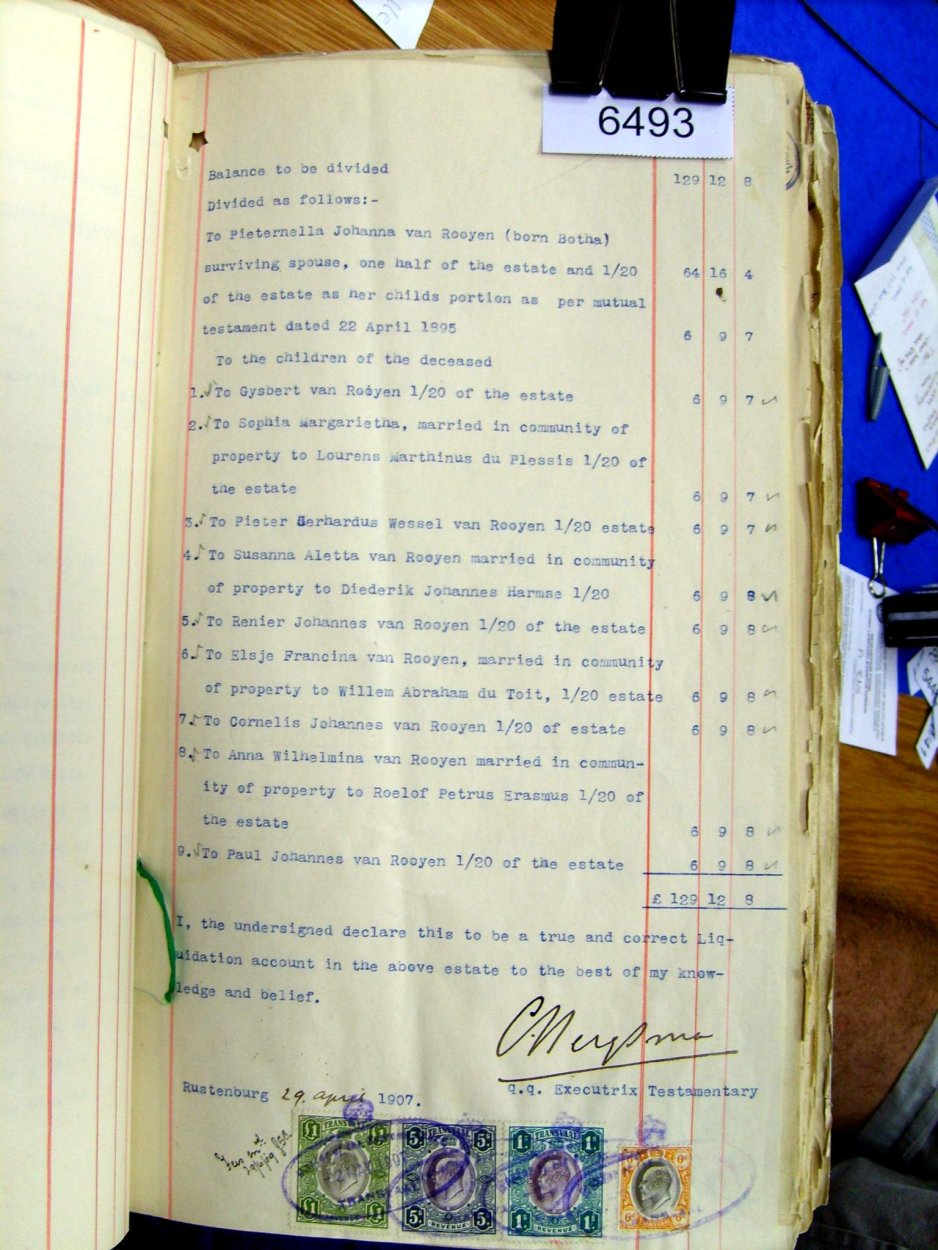 6493
Balance to be divided 129 12 8
Divided as follows:-
To Pieternella Johanna van Rooyen (born Botha)
surviving spouse, one half of the estate and 1/20 64 16 4
of the estate as her childs portion as per mutual
testament dated 22 April 1895 6 9 7
To the children of the deceased
1. To Gysbert van Rooyen 1/20 of the estate 6 9 7
2. To Sophia Margarietha, married in community of
property to Lourens Marthinus du Plessis 1/20 of
the estate 6 9 7
3. To Pieter Gerhardus Wessel van Rooyen 1/20 estate 6 9 7
4. To Susanna Aletta van Rooyen married in community
of property to Diederik Johannes Harmse 1/20 6 9 8
5. To Renier Johannes van Rooyen 1/20 of the estate 6 9 8
6. To Elsje Francina van Rooyen, married in community
of property to Willem Abraham du Toit, 1/20 estate 6 9 8
7. To Cornelis Johannes van Rooyen 1/20 of estate 6 9 8
8. To Anna Wilhelmina van Rooyen married in commun-
ity of property to Roelof Petrus Erasmus 1/20 of
the estate 6 9 8
9. To Paul Johannes van Rooyen 1/20 of the estate 6 9 8
£ 129 12 8
I, the undersigned declare this to be a true and correct Liq-
uidation account in the above estate to the best of my know-
ledge and belief.
Rustenburg 29 april 1907. q.q. Executrix Testamentary
£1 TRANSVAAL £1 5/- 5/- 1/- TRANSVAAL 1/-
£1 £1 5/- REVENUE 5/- 1/- REVENUE 1/-
TRANSVAAL